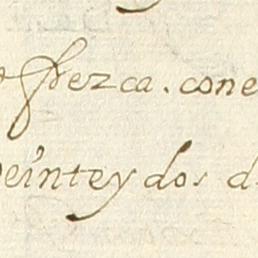 frezca. con
veinteydos d